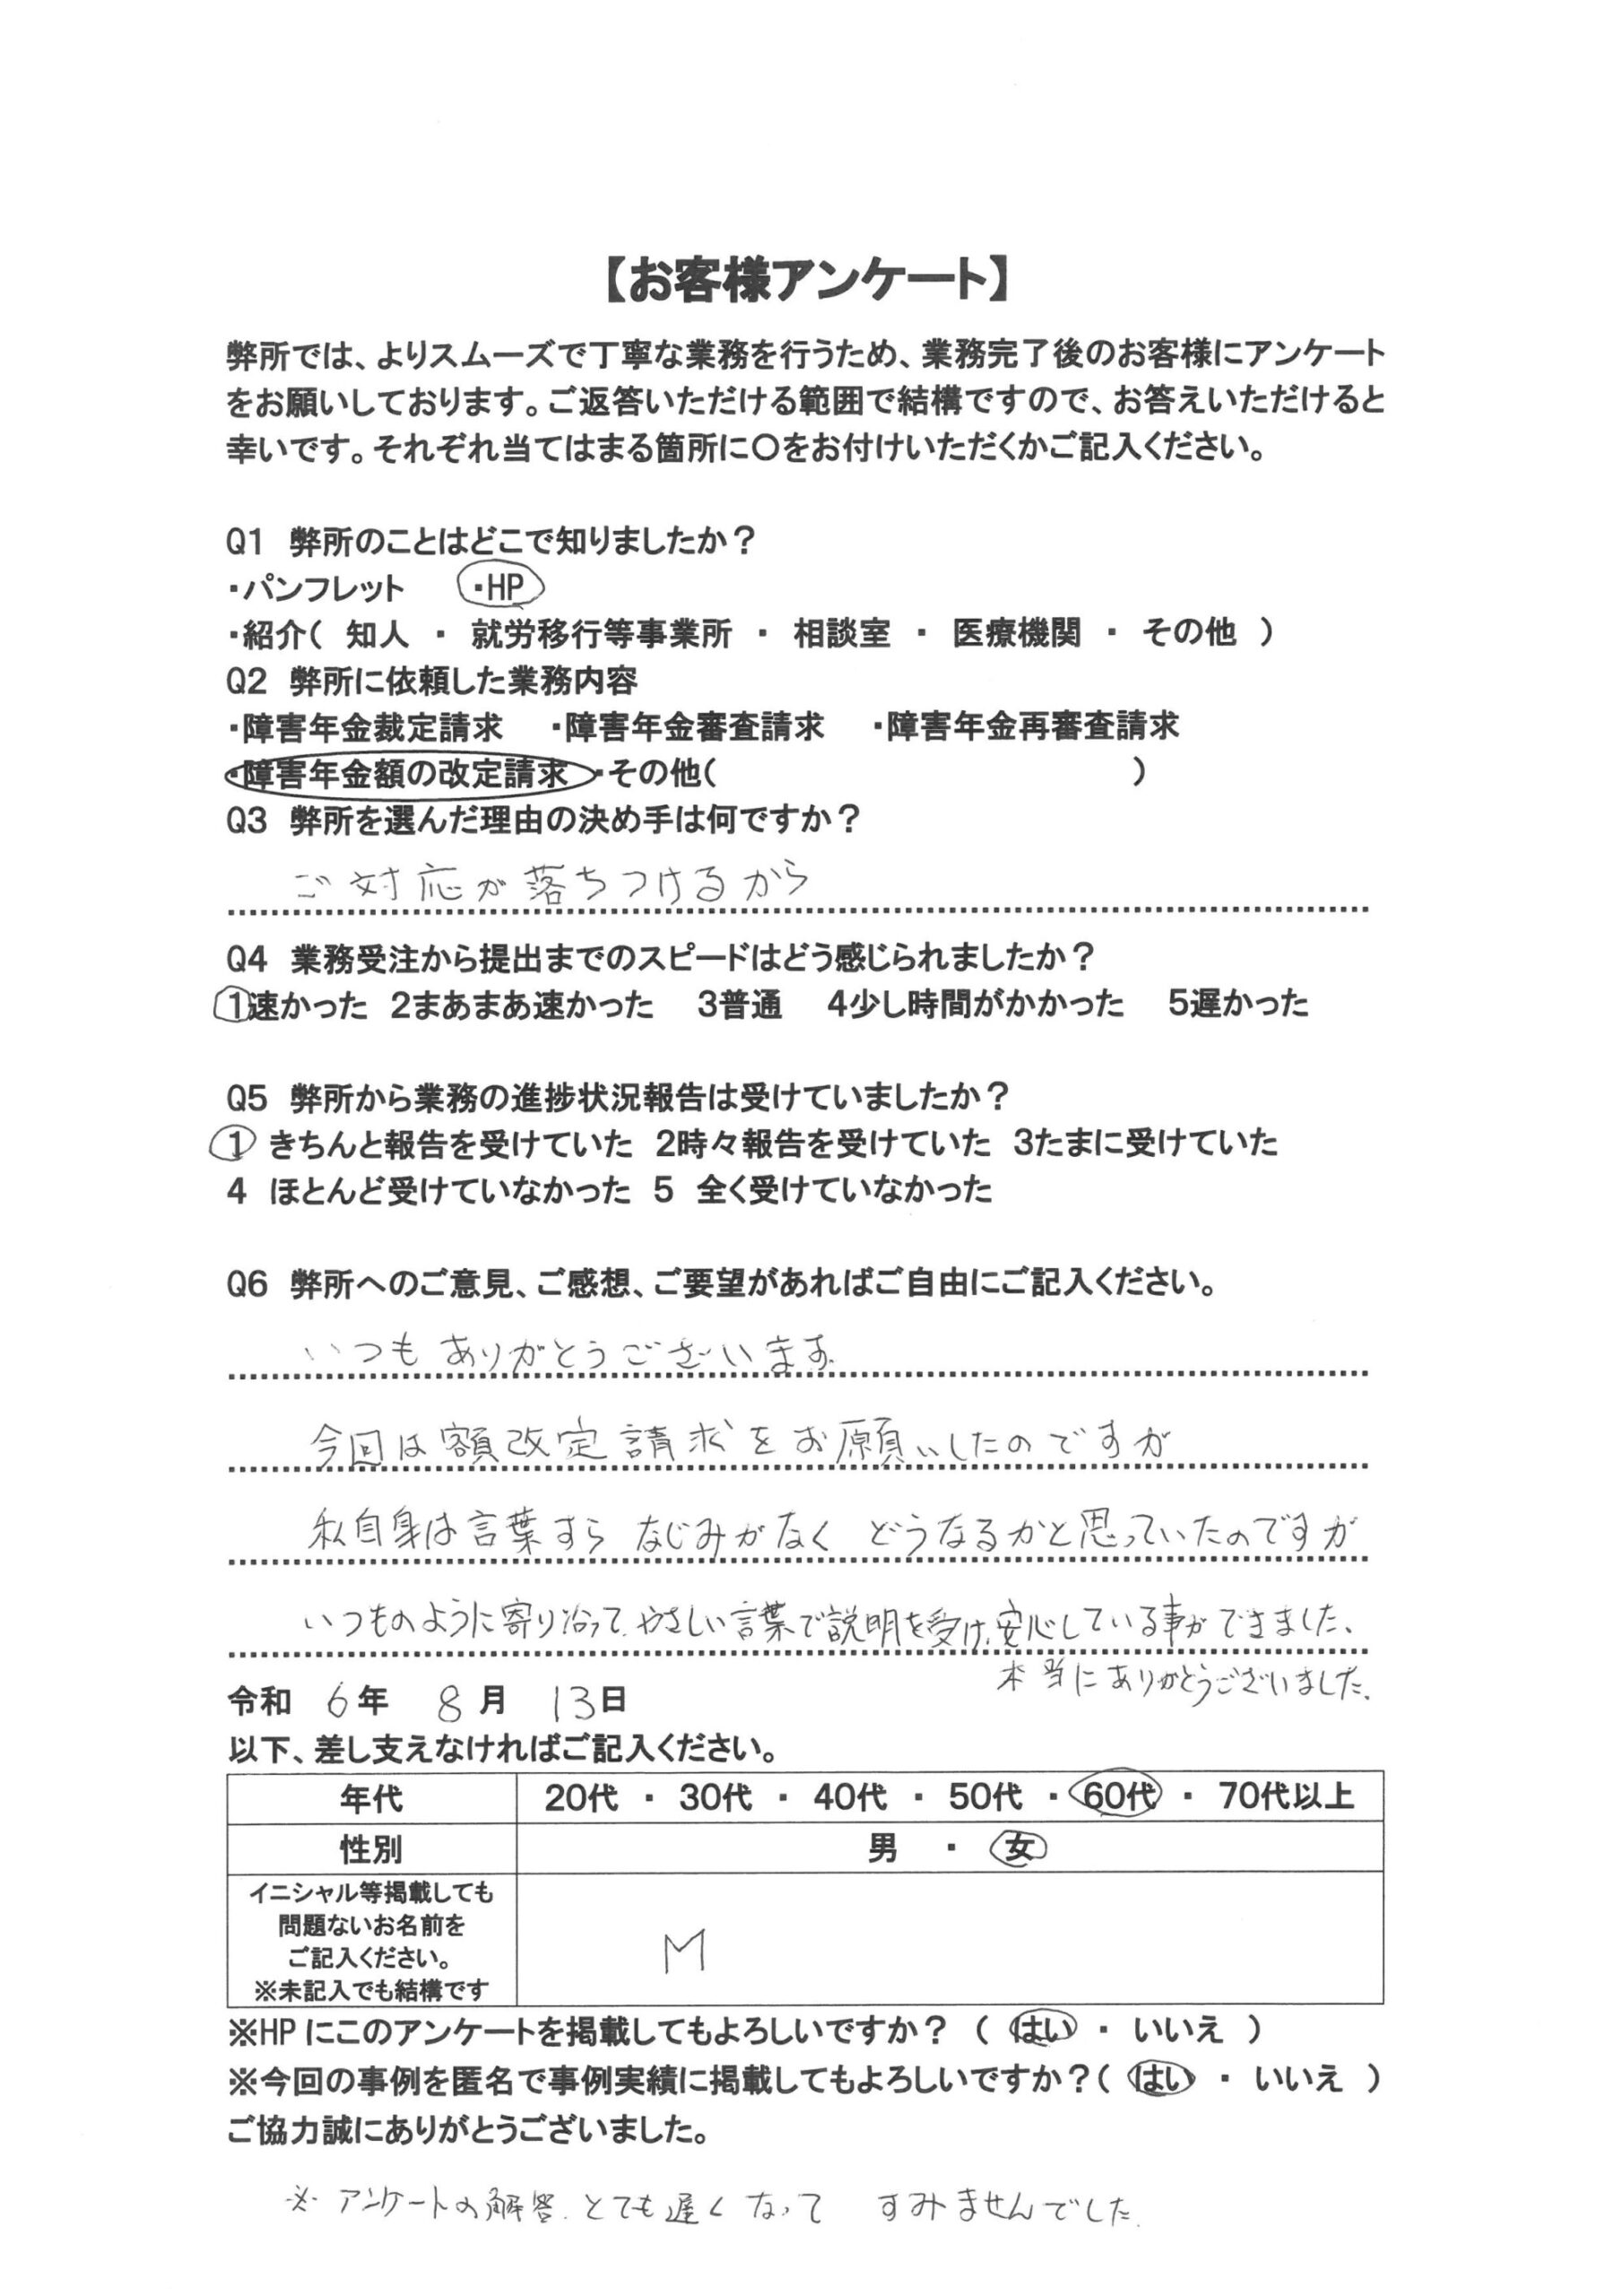 【お客様アンケート】
弊所では、よりスムーズで丁寧な業務を行うため、業務完了後のお客様にアンケート
をお願いしております。ご返答いただける範囲で結構ですので、お答えいただけると
幸いです。それぞれ当てはまる箇所に〇をお付けいただくかご記入ください。
Q1 弊所のことはどこで知りましたか？
・パンフレット ・HP
・紹介（ 知人 ・ 就労移行等事業所 ・ 相談室 ・ 医療機関 ・ その他 ）
Q2 弊所に依頼した業務内容
・障害年金裁定請求 ・障害年金審査請求 ・障害年金再審査請求
・障害年金額の改定請求 ・その他（ ）
Q3 弊所を選んだ理由の決め手は何ですか？
ご対応が落ちつけるから
Q4 業務受注から提出までのスピードはどう感じられましたか？
1速かった 2まあまあ速かった 3普通 4少し時間がかかった 5遅かった
Q5 弊所から業務の進捗状況報告は受けていましたか？
1 きちんと報告を受けていた 2時々報告を受けていた 3たまに受けていた
4 ほとんど受けていなかった 5 全く受けていなかった
Q6 弊所へのご意見、ご感想、ご要望があればご自由にご記入ください。
いつもありがとうございます
今回は額改定請求をお願いしたのですが
私自身は言葉すら なじみがなく どうなるかと思っていたのですが
いつものように寄り沿って、やさしい言葉で説明を受け、安心している事ができました、
本当にありがとうございました。
令和 6年 8月 13日
以下、差し支えなければご記入ください。
年代 20代 ・ 30代 ・ 40代 ・ 50代 ・ 60代 ・ 70代以上
性別 男 ・ 女
イニシャル等掲載しても
問題ないお名前を
ご記入ください。
※未記入でも結構です
M
※HPにこのアンケートを掲載してもよろしいですか？（ はい ・ いいえ ）
※今回の事例を匿名で事例実績に掲載してもよろしいですか？（ はい ・ いいえ ）
ご協力誠にありがとうございました。
※ アンケートの解答、とても遅くなって すみませんでした。